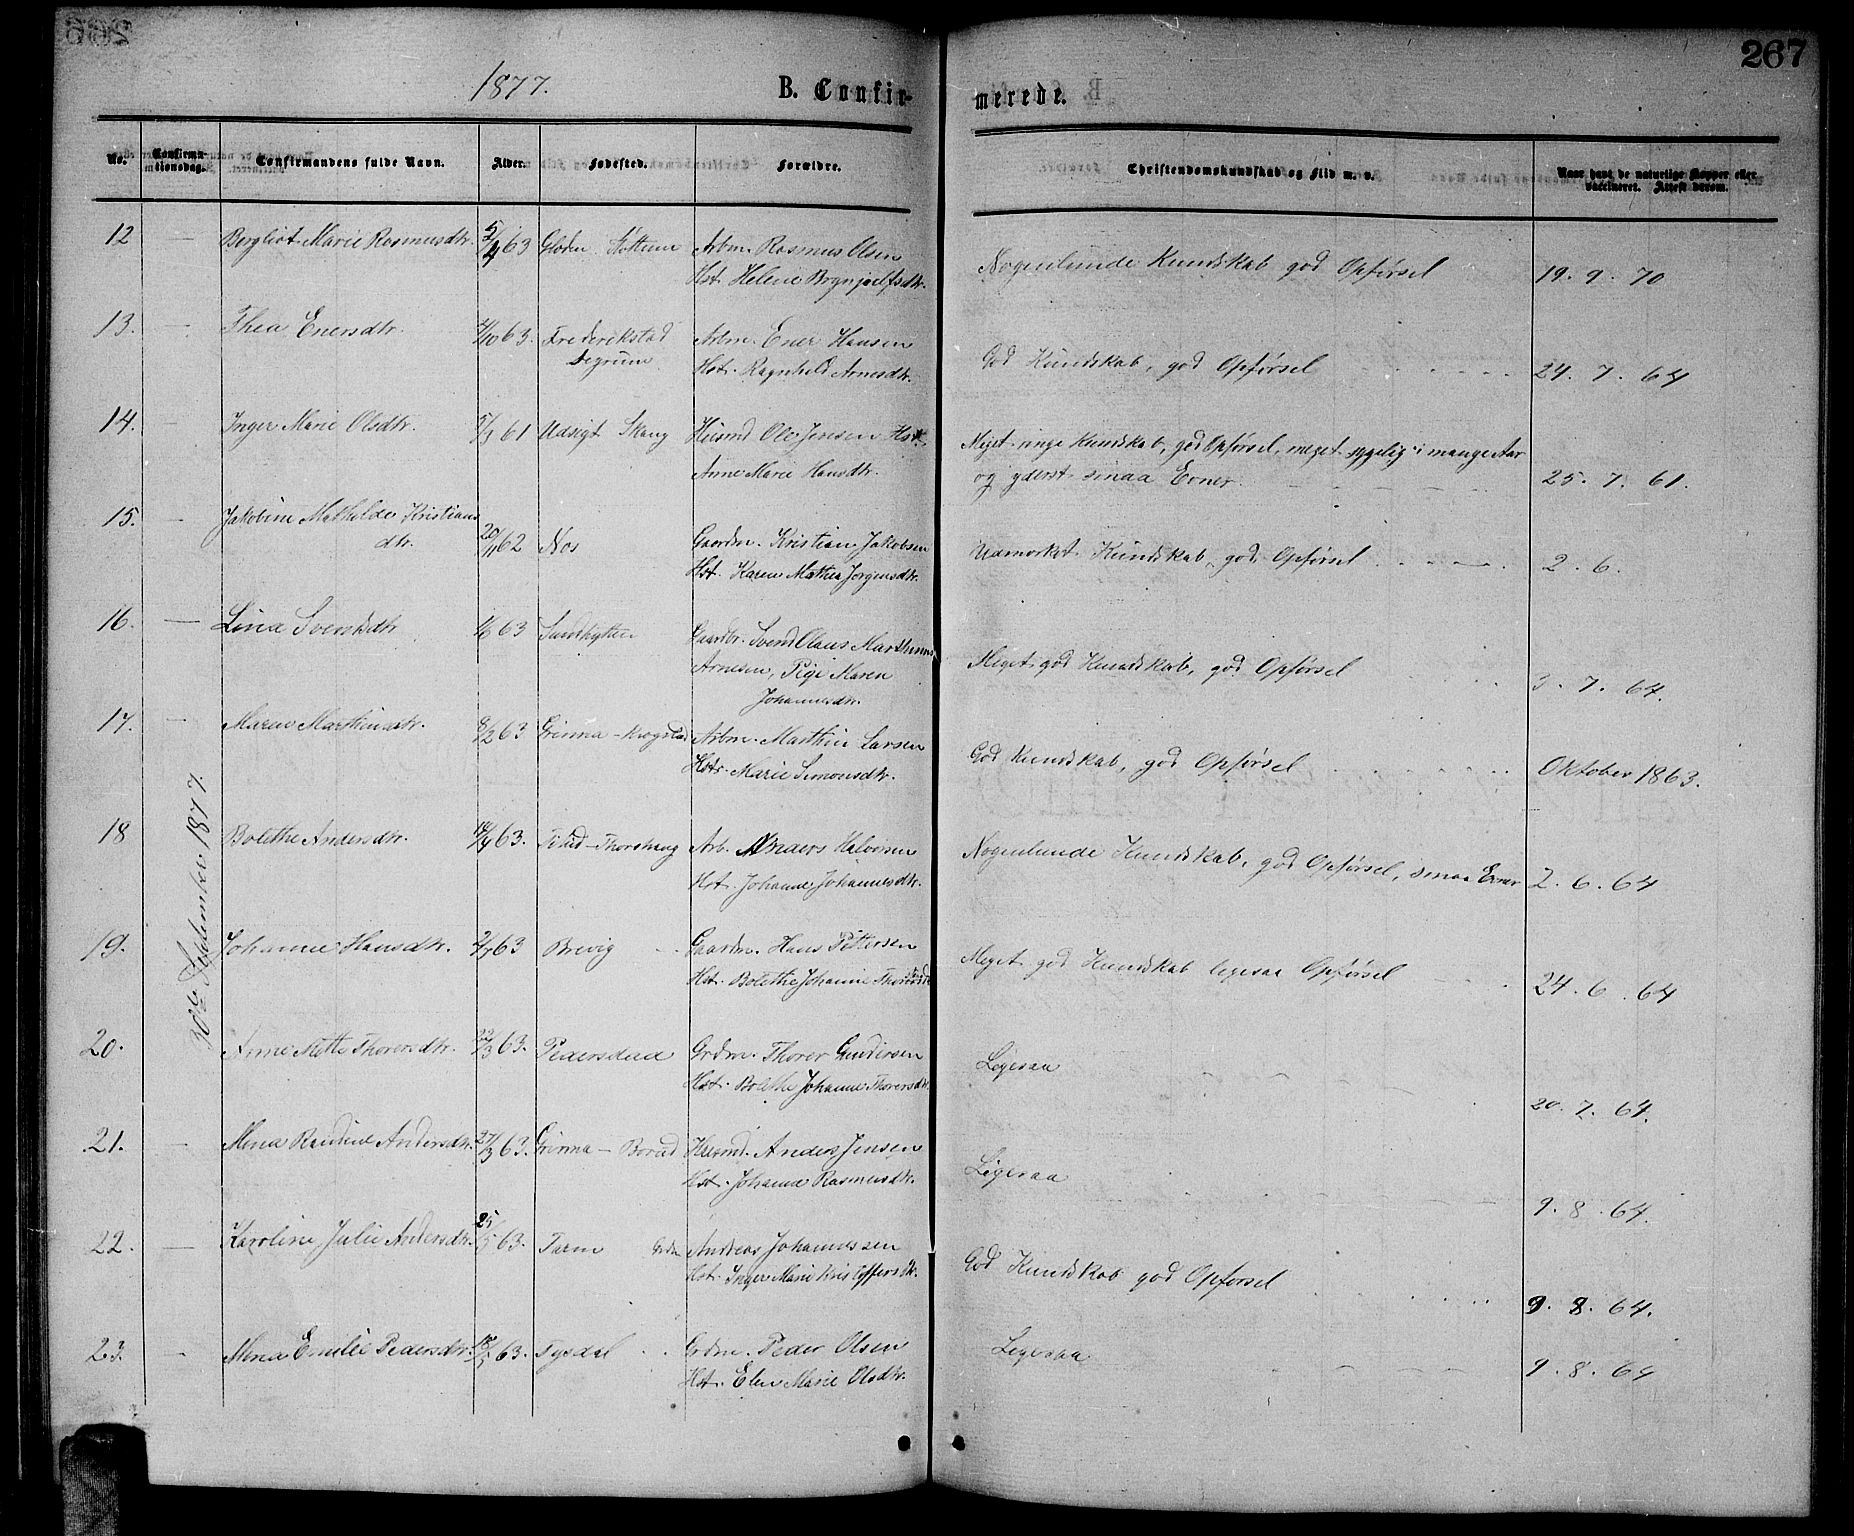 267
1877.
B. Confir-
merede.
No.
Confirma-
tionsdag.
Confirmandens fulde Navn.
Alder.
Fødested.
Forældre.
Christendomskundskab og Flid m. v.
Naar havt de naturlige Kopper eller
vaccineret. Attest derom.
30te September 1877.
12 — Bergliot Marie Rasmusdtr. 5/4 63 Arbm. Rasmus Olsen
Hst. Helene Brynjolfsdtr.
Nogenlunde Kundskab god Opførsel 19. 9. 70
13. — Thea Enersdtr. /10 63. Frederikstad Arbm. Ener Hansen
Hst. Ragnhild Arnesdtr.
God Kundskab, god Opførsel 24. 7. 64
14. — Inger Marie Olsdtr. 5/3 61 Udsigt Skaug Husmd Ole Jensen Hst.
Anne Marie Hansdtr.
Meget ringe Kundskab, god Opførsel, meget sygelig i mange Aar
og yderst smaa Evner. 25. 7. 61.
15. — Jakobine Mathilde Kristians
dtr. 20/11 62 Nos Gaardm. Kristian Jakobsen
Hst. Karen Mathea Jørgensdtr.
Udmærket Kundskab, god Opførsel 2. 6.
16. — Lina Svendsdtr 63 Gaardbr. Svend Olaus Marthinus
Arnesen, Pige Maren
Johannesdtr.
Meget god Kundskab, god Opførsel 3. 7. 64.
17. — Maren Marthinsdtr. 8/2 63 Grimma - Krogstad Arbm. Marthin Larsen
Hstr. Marie Simonsdtr.
God Kundskab, god Opførsel Oktober 1863.
18 Bolethe Andersdtr. 63. Arb. Anders Halvorsen
Hst. Johanne Johannesdtr.
Nogenlunde Kundskab, god Opførsel, smaa Evner 2. 6. 64
19. Johanne Hansdtr. 2/7 63 Brevig Gaardm. Hans Pettersen
Hst. Bolethe Johanne
Meget god Kundskab ligesaa Opførsel 24. 6. 64
20. Anne Mette Thorersdtr. 22/3 63. Grdm. Thorer Gundersen
Hst. Bolethe Johanne Thorersdtr.
Ligesaa 20. 7. 64.
21. — Mina Randine Andersdtr. 27/3 63. Grimma - Borud Husmd. Anders Jensen
Hst. Johanne Rasmusdtr.
Ligesaa 9. 8. 64.
22. — Karoline Julie Andersdtr. 25/5 63. Grdm Andreas Johannessen
Hst. Inger Marie Kristoffersdtr.
God Kundskab god Opførsel 9. 8. 64.
23. — Mina Emilie Pedersdtr. 63. Tysdal Grdm. Peder Olsen
Hst. Elen Marie Olsdtr.
Ligesaa 9. 8. 64